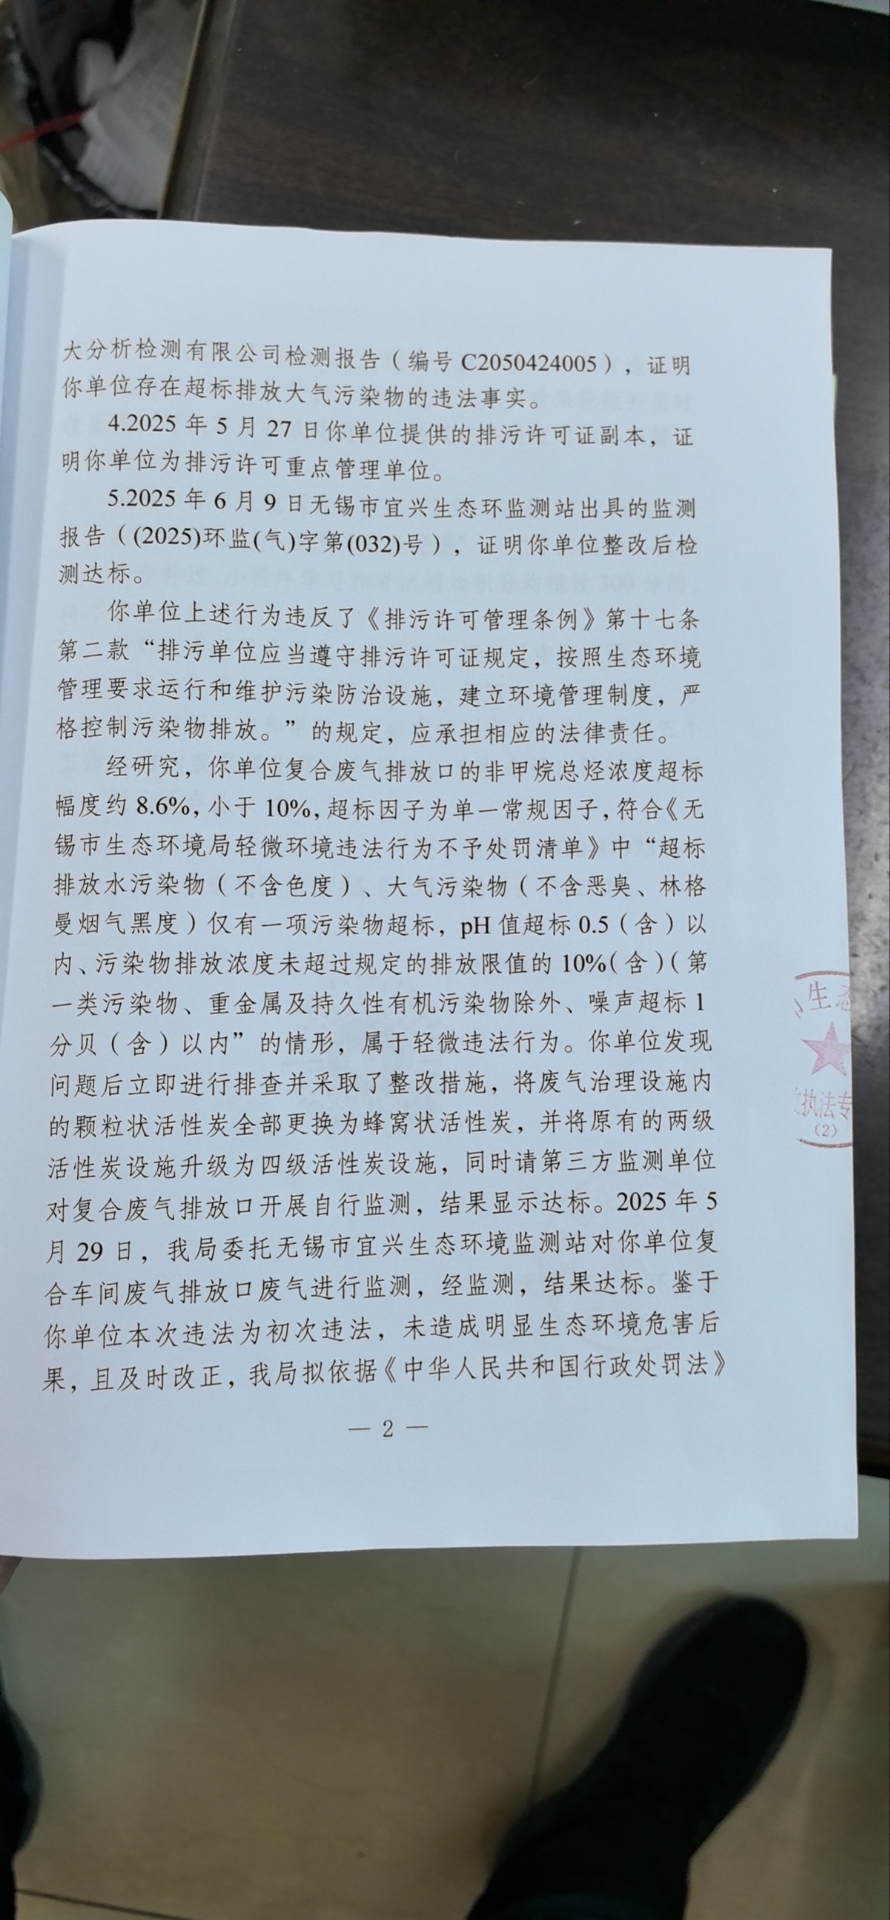 大分析检测有限公司检测报告（编号 C2050424005），证明
你单位存在超标排放大气污染物的违法事实。
4.2025 年 5 月 27 日你单位提供的排污许可证副本，证
明你单位为排污许可重点管理单位。
5.2025 年 6 月 9 日无锡市宜兴生态环监测站出具的监测
报告（(2025)环监(气)字第(032)号），证明你单位整改后检
测达标。
你单位上述行为违反了《排污许可管理条例》第十七条
第二款“排污单位应当遵守排污许可证规定，按照生态环境
管理要求运行和维护污染防治设施，建立环境管理制度，严
格控制污染物排放。”的规定，应承担相应的法律责任。
经研究，你单位复合废气排放口的非甲烷总烃浓度超标
幅度约 8.6%，小于 10%，超标因子为单一常规因子，符合《无
锡市生态环境局轻微环境违法行为不予处罚清单》中“超标
排放水污染物（不含色度）、大气污染物（不含恶臭、林格
曼烟气黑度）仅有一项污染物超标，pH 值超标 0.5（含）以
内、污染物排放浓度未超过规定的排放限值的 10%（含）（第
一类污染物、重金属及持久性有机污染物除外、噪声超标 1
分贝（含）以内”的情形，属于轻微违法行为。你单位发现
问题后立即进行排查并采取了整改措施，将废气治理设施内
的颗粒状活性炭全部更换为蜂窝状活性炭，并将原有的两级
活性炭设施升级为四级活性炭设施，同时请第三方监测单位
对复合废气排放口开展自行监测，结果显示达标。2025 年 5
月 29 日，我局委托无锡市宜兴生态环境监测站对你单位复
合车间废气排放口废气进行监测，经监测，结果达标。鉴于
你单位本次违法为初次违法，未造成明显生态环境危害后
果，且及时改正，我局拟依据《中华人民共和国行政处罚法》
— 2 —
生态
执法专
(2)